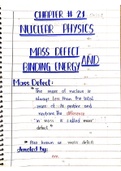 CHAPTER # 21
NUCLEAR PHYSICS
MASS DEFECT AND
BINDING ENERGY
Mass Defect:
"The mass of nucleus is
always less than the total
mass of its protons and
neutrons the difference
in mass is called mass
defect"
Also known as mass deficit
denoted by: